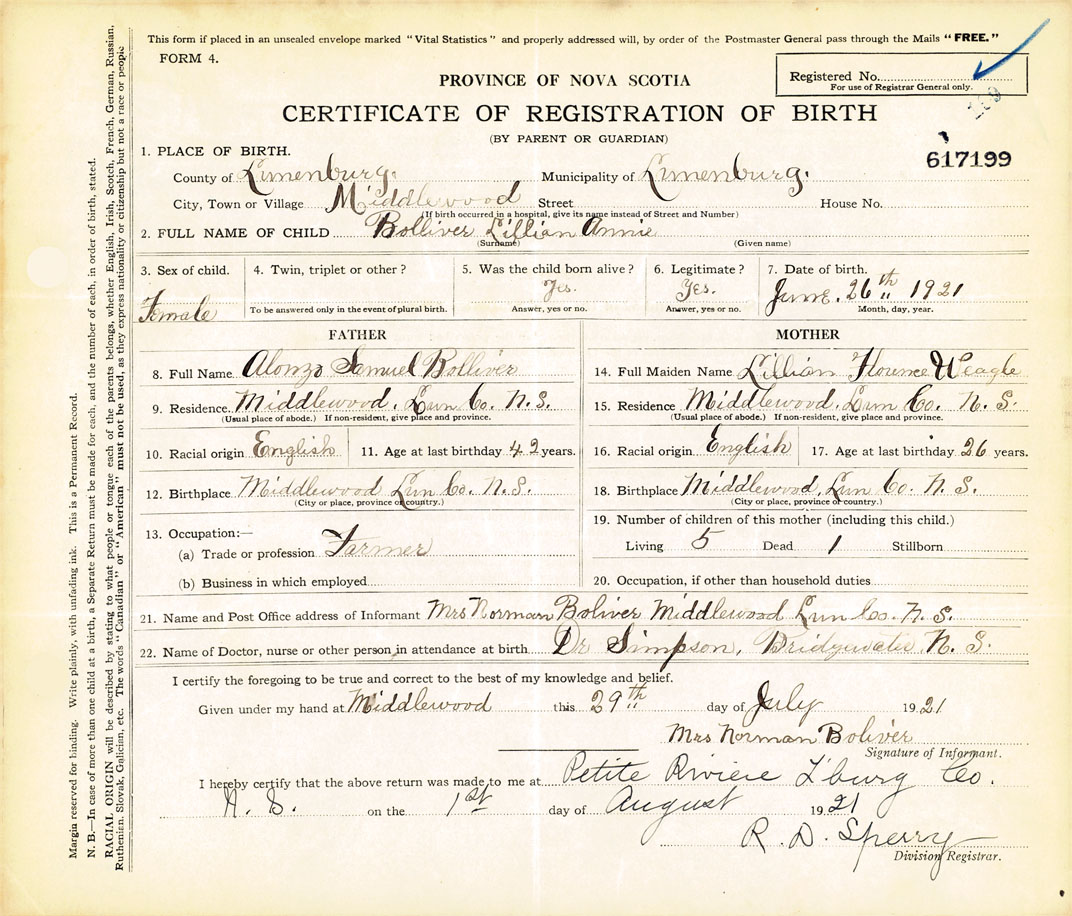 This form if placed in an unsealed envelope marked "Vital Statistics" and properly addressed will, by order of the Postmaster General pass through the Mails "FREE."
FORM 4.
Registered No.
For use of Registrar General only.
PROVINCE OF NOVA SCOTIA
CERTIFICATE OF REGISTRATION OF BIRTH
(BY PARENT OR GUARDIAN)
617199
1. PLACE OF BIRTH.
County of Lunenburg. Municipality of Lunenburg.
City, Town or Village Middlewood Street House No.
(If birth occurred in a hospital, give its name instead of Street and Number)
2. FULL NAME OF CHILD Bolliver Lillian Annie
(Surname) (Given name)
3. Sex of child. 4. Twin, triplet or other? 5. Was the child born alive? 6. Legitimate? 7. Date of birth.
Female Yes. Yes. June. 26th 1921
To be answered only in the event of plural birth. Answer, yes or no. Answer, yes or no. Month, day, year.
FATHER
8. Full Name Alonzo Samuel Bolliver
9. Residence Middlewood. Lun Co. N. S.
(Usual place of abode.) If non-resident, give place and province.
10. Racial origin English 11. Age at last birthday 42 years.
12. Birthplace Middlewood Lun Co. N. S.
(City or place, province or country.)
13. Occupation:—
(a) Trade or profession Farmer
(b) Business in which employed
MOTHER
14. Full Maiden Name Lillian Florence Weagle
15. Residence Middlewood. Lun Co. N. S.
(Usual place of abode.) If non-resident, give place and province.
16. Racial origin English 17. Age at last birthday 26 years.
18. Birthplace Middlewood, Lun Co. N. S.
(City or place, province or country.)
19. Number of children of this mother (including this child.)
Living 5 Dead 1 Stillborn
20. Occupation, if other than household duties
21. Name and Post Office address of Informant Mrs Norman Boliver Middlewood Lun Co. N. S.
22. Name of Doctor, nurse or other person in attendance at birth Dr Simpson, Bridgwater N. S.
I certify the foregoing to be true and correct to the best of my knowledge and belief.
Given under my hand at Middlewood this 29th day of July 1921
Mrs Norman Boliver
Signature of Informant.
I hereby certify that the above return was made to me at Petite Riviere L'burg Co.
N. S. on the 1st day of August 1921
R. D. Sperry
Division Registrar.
Margin reserved for binding. Write plainly, with unfading ink. This is a Permanent Record.
N. B.—In case of more than one child at a birth, a Separate Return must be made for each, and the number of each, in order of birth, stated.
RACIAL ORIGIN will be described by stating to what people or tongue each of the parents belongs, whether English, Irish, Scotch, French, German, Russian,
Ruthenian, Slovak, Galician, etc. The words "Canadian" or "American" must not be used, as they express nationality or citizenship but not a race or people